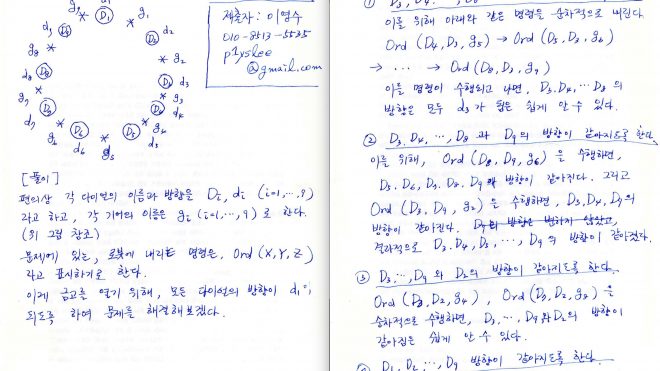 제출자 : 이영수
010-8513-5535
p1yslee
@gmail.com
[풀이]
편의상 각 다이얼의 이름과 방향을 Di, di (i=1,…,9)
라고 하고, 각 기어의 이름은 gi (i=1,…,9) 로 한다.
(위 그림 참조)
문제에 있는, 로봇에 내리는 명령은, Ord (X, Y, Z)
라고 표시하기로 한다.
이제 금고를 열기 위해, 모든 다이얼의 방향이 d1이
되도록 하여 문제를 해결해보겠다.
이를 위해 아래와 같은 명령을 순차적으로 내린다.
Ord (D4, D3, g5) → Ord (D5, D3, g6)
→ … → Ord (D8, D3, g9)
이들 명령이 수행되고 나면, D3, D4, … D8 의
방향은 모두 d3 가 됨은 쉽게 알 수 있다.
② D3, D4, …, D8 과 D9 의 방향이 같아지도록 한다.
이를 위해, Ord (D8, D9, g6) 을 수행하면,
D5, D6, D7, D8, D9 의 방향이 같아진다. 그리고
Ord (D3, D9, g2) 을 수행하면, D3, D4, D9의
방향이 같아진다. D9의 방향은 변하지 않았고,
결과적으로 D3, D4, D5, …, D9 의 방향이 같아졌다.
③ D3, …, D9 와 D2의 방향이 같아지도록 한다.
Ord (D8, D2, g4), Ord (D3, D2, g8) 을
순차적으로 수행하면, D3, …, D9와 D2의 방향이
같아짐은 쉽게 알 수 있다.
④ D1, D2, …, D9 방향이 같아지도록 한다.